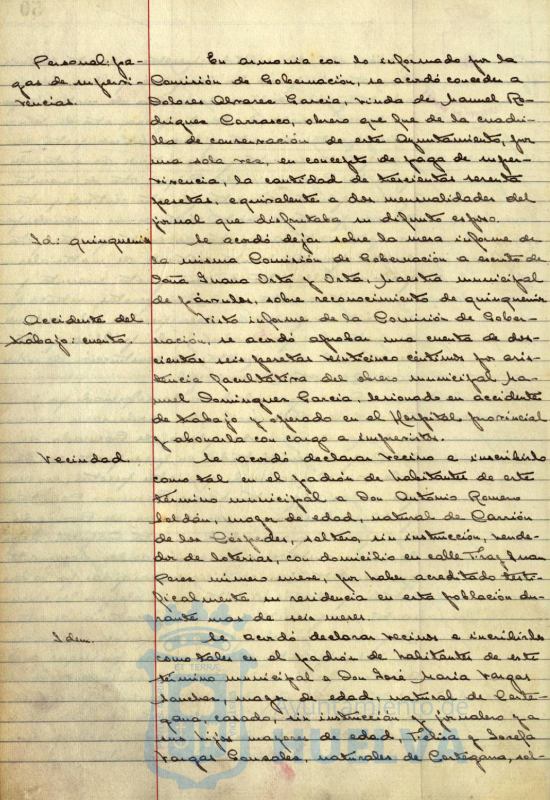 Personal: pa-
gas de supervi-
vencias.
En armonia con lo informado por la
Comisión de Gobernación, se acordó conceder a
Dolores Alvarez Garcia, viuda de Manuel Ro-
driguez Carrasco, obrero que fue de la cuadri-
lla de conservación de este Ayuntamiento, por
una sola vez, en concepto de paga de super-
vivencia, la cantidad de trescientas sesenta
pesetas, equivalente a dos mensualidades del
jornal que disfrutaba su difunto esposo.
Id: quinquenio
Se acordó dejar sobre la mesa informe de
la misma Comisión de Gobernación a escrito de
Doña Juana Orta y Orta, Maestra municipal
de párvulos, sobre reconocimiento de quinquenio.
Accidente del
trabajo: cuenta.
Visto informe de la Comisión de Gober-
nación, se acordó aprobar una cuenta de dos-
cientas seis pesetas veinticinco céntimos por asis-
tencia facultativa del obrero municipal Ma-
nuel Dominguez Garcia, lesionado en accidente
de trabajo y operado en el Hospital provincial
y abonarla con cargo a imprevistos.
Vecindad.
Se acordó declarar vecino e inscribirlo
como tal en el padrón de habitantes de este
término municipal a Don Antonio Romero
Roldán, mayor de edad, natural de Carrión
de los Céspedes, soltero, sin instrucción, vende-
dor de loterias, con domicilio en calle Fray Juan
Perez número nueve, por haber acreditado testi-
ficalmente su residencia en esta población du-
rante mas de seis meses.
Idem.
Se acordó declarar vecinos e inscribirlos
como tales en el padrón de habitantes de este
término municipal a Don José Maria Vargas
Sanchez, mayor de edad, natural de Corte-
gana, casado, sin instrucción y jornalero y a
sus hijos mayores de edad, Felisa y Josefa
Vargas Gonzalez, naturales de Cortegana, sol-
Ayuntamiento de
HUELVA